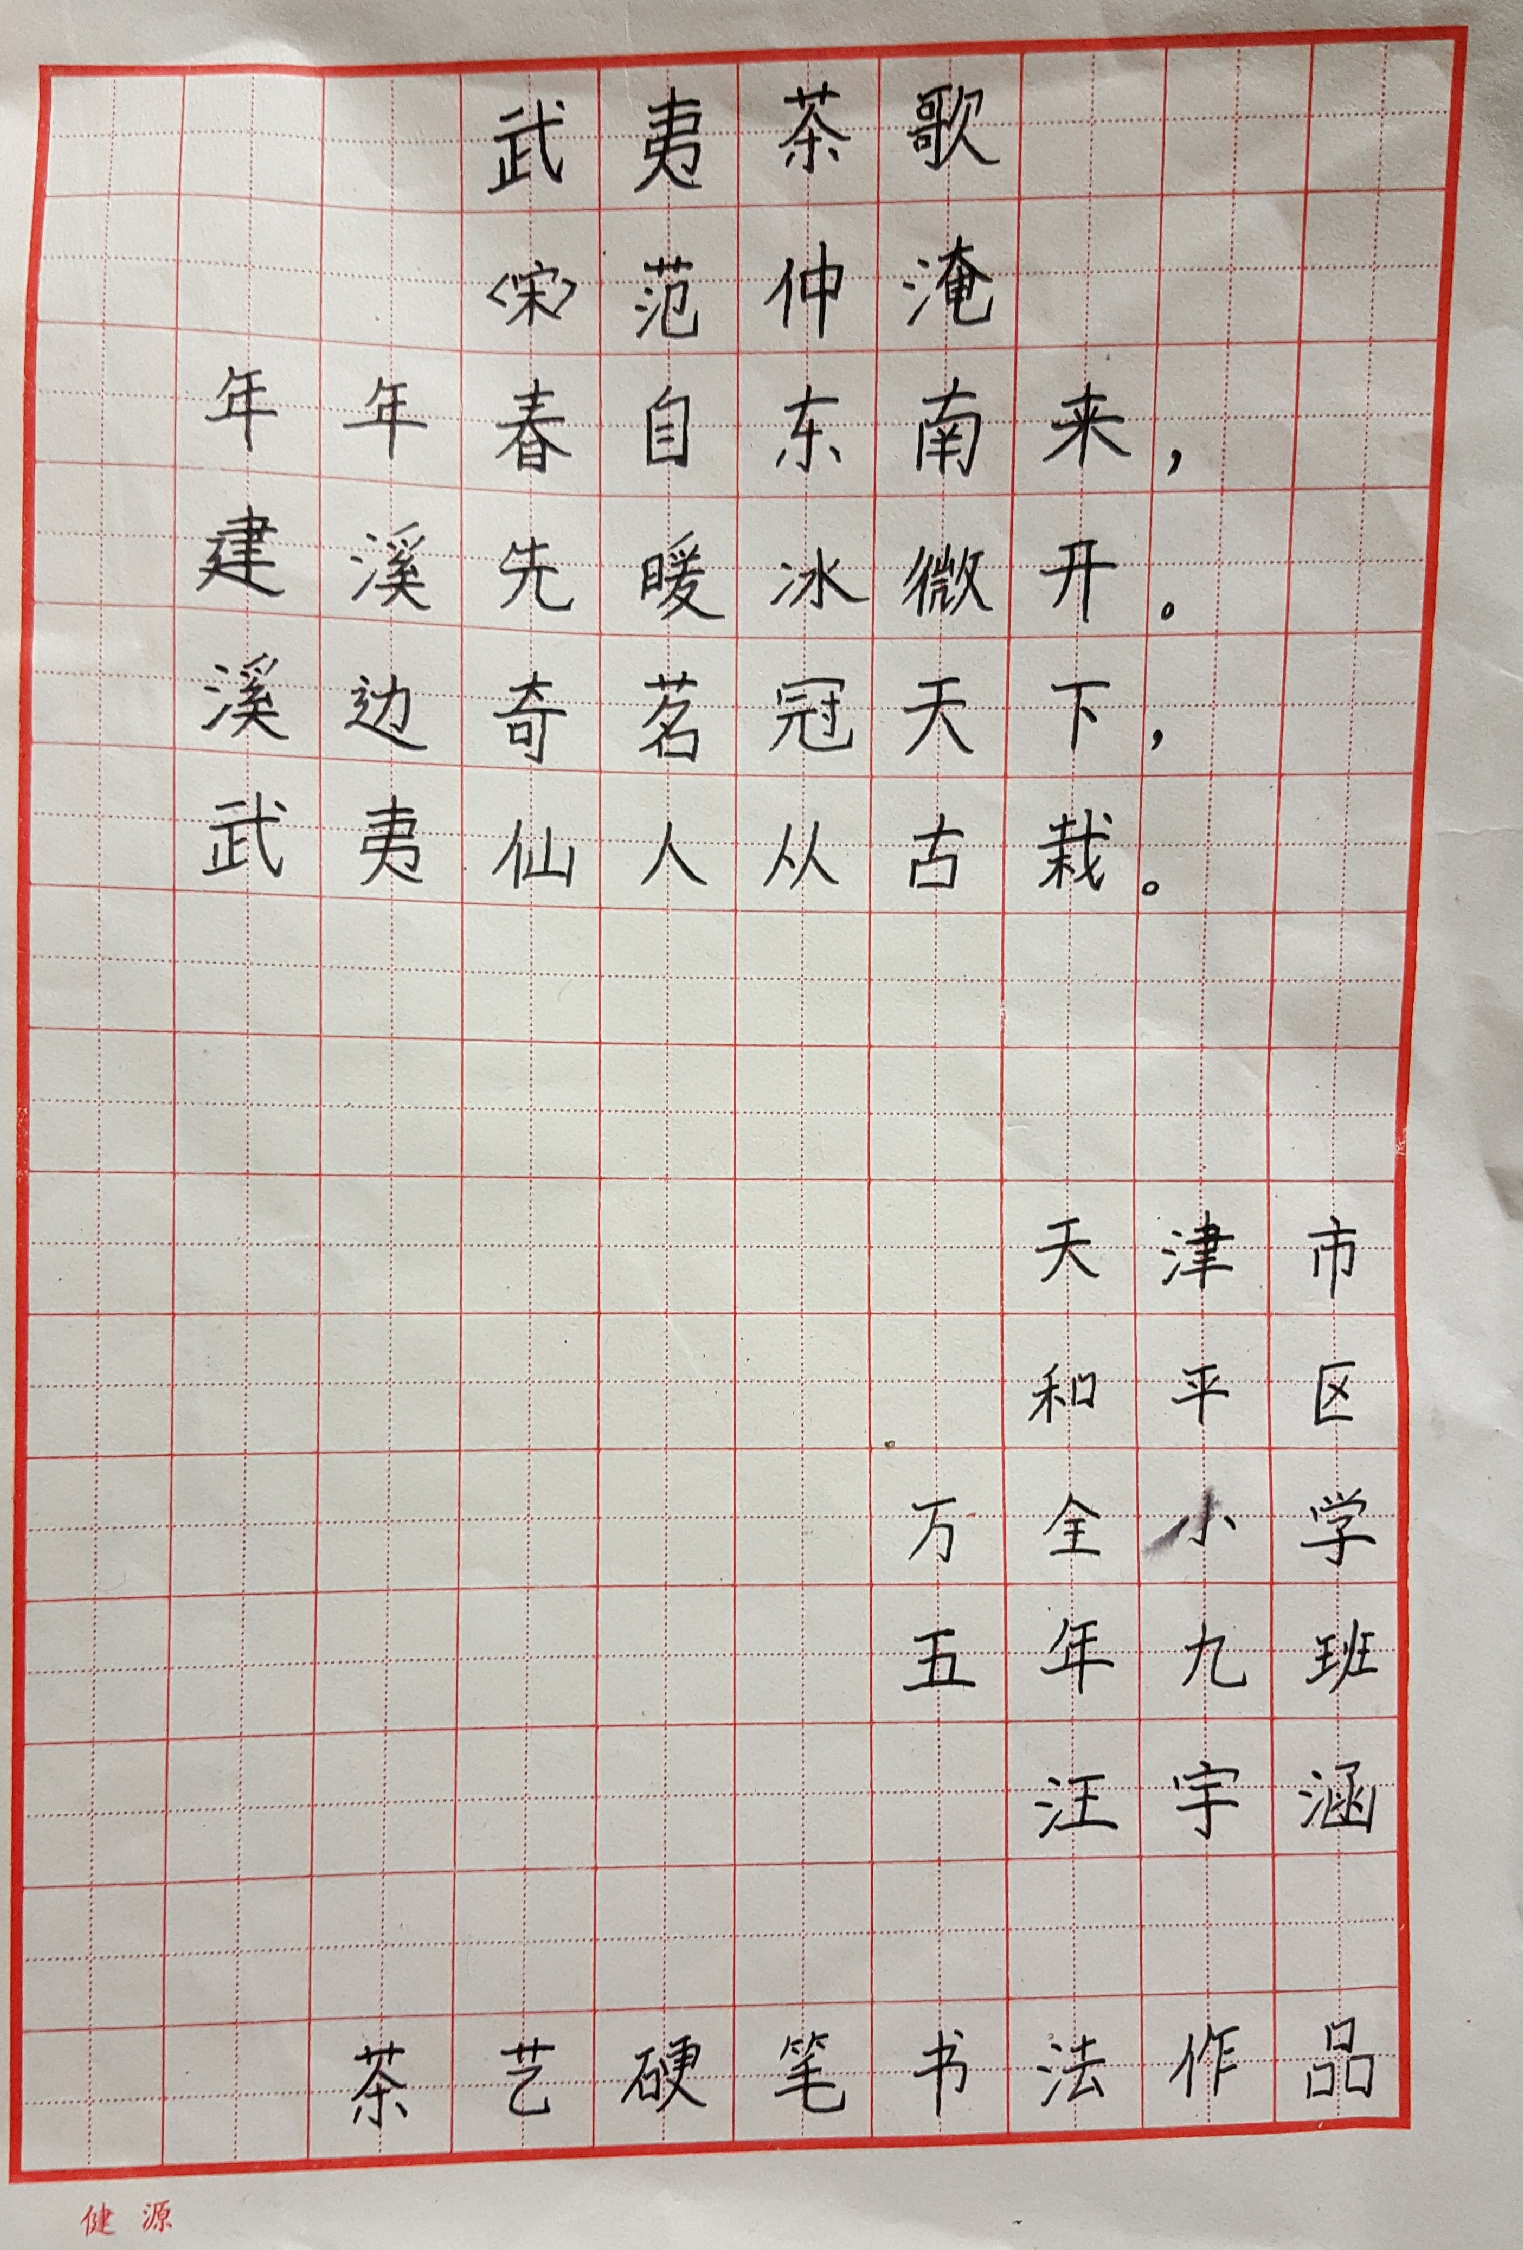 武夷茶歌
<宋>范仲淹
年年春自东南来，
建溪先暖冰微开。
溪边奇茗冠天下，
武夷仙人从古栽。
天津市
和平区
万全小学
五年九班
汪宇涵
茶艺硬笔书法作品
健源